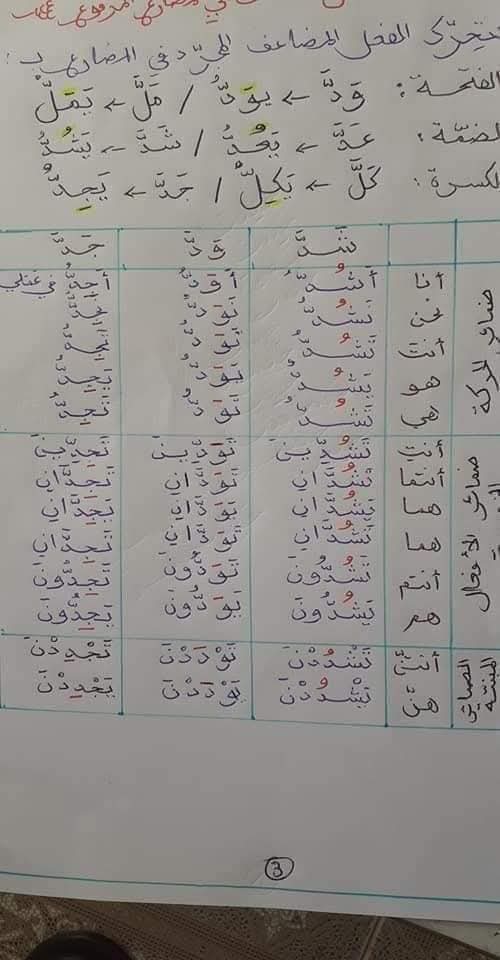 في المضارع المرفوع
يتحرّك الفعل المضاعف المجرّد في المضارع بـ :
الفتحة: وَدَّ ← يَوَدُّ / مَلَّ ← يَمَلُّ
لضمّة: عَدَّ ← يَعُدُّ / شَدَّ ← يَشُدُّ
لكسرة: كَلَّ ← يَكِلُّ / جَدَّ ← يَجِدُّ
شَدَّ وَدَّ جَدَّ
ضمائر الحركة
أنا أَشُدُّ أَوَدُّ أَجِدُّ في عملي
نحن نَشُدُّ نَوَدُّ نَجِدُّ
أنتَ تَشُدُّ تَوَدُّ تَجِدُّ
هو يَشُدُّ يَوَدُّ يَجِدُّ
هي تَشُدُّ تَوَدُّ تَجِدُّ
ضمائر الأفعال
أنتِ تَشُدِّينَ تَوَدِّينَ تَجِدِّينَ
أنتما تَشُدَّانِ تَوَدَّانِ تَجِدَّانِ
هما يَشُدَّانِ يَوَدَّانِ يَجِدَّانِ
هما تَشُدَّانِ تَوَدَّانِ تَجِدَّانِ
أنتم تَشُدُّونَ تَوَدُّونَ تَجِدُّونَ
هم يَشُدُّونَ يَوَدُّونَ يَجِدُّونَ
الضمائر المبنية
أنتنّ تَشْدُدْنَ تَوْدَدْنَ تَجْدِدْنَ
هنّ يَشْدُدْنَ يَوْدَدْنَ يَجْدِدْنَ
3